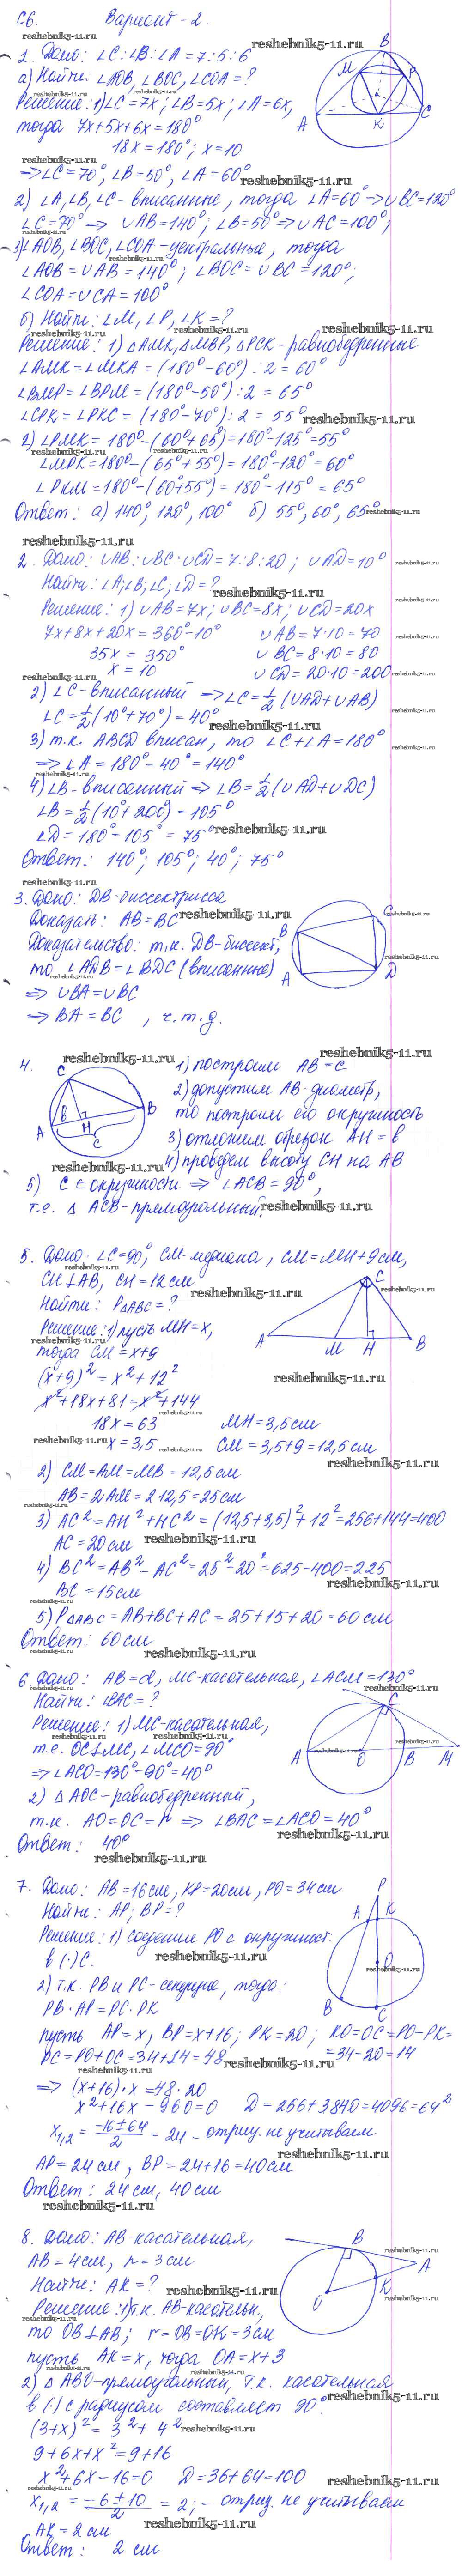 С6. Вариант - 2.
1. Дано: ∠C:∠B:∠A = 7:5:6
а) Найти: ∠AOB, ∠BOC, ∠COA = ?
Решение: 1) ∠C = 7x; ∠B = 5x; ∠A = 6x,
тогда 7x+5x+6x = 180°
18x = 180°; x = 10
⇒ ∠C = 70°, ∠B = 50°, ∠A = 60°
2) ∠A, ∠B, ∠C - вписанные, тогда ∠A = 60° ⇒ ∪BC = 120°
∠C = 70° ⇒ ∪AB = 140°; ∠B = 50° ⇒ ∪AC = 100°;
3) ∠AOB, ∠BOC, ∠COA - центральные, тогда
∠AOB = ∪AB = 140°; ∠BOC = ∪BC = 120°;
∠COA = ∪CA = 100°
б) Найти: ∠M, ∠P, ∠K = ?
Решение: 1) ΔAMK, ΔMBP, ΔPCK - равнобедренные
∠AMK = ∠MKA = (180° - 60°) : 2 = 60°
∠BMP = ∠BPM = (180° - 50°) : 2 = 65°
∠CPK = ∠PKC = (180° - 70°) : 2 = 55°
2) ∠PMK = 180° - (60° + 65°) = 180° - 125° = 55°
∠MPK = 180° - (65° + 55°) = 180° - 120° = 60°
∠PKM = 180° - (60 + 55°) = 180° - 115° = 65°
Ответ: а) 140°, 120°, 100° б) 55°, 60°, 65°
2. Дано: ∪AB:∪BC:∪CD = 7:8:20; ∪AD = 10°
Найти: ∠A; ∠B; ∠C; ∠D = ?
Решение: 1) ∪AB = 7x; ∪BC = 8x; ∪CD = 20x
7x+8x+20x = 360° - 10° ∪AB = 7·10 = 70
35x = 350° ∪BC = 8·10 = 80
x = 10 ∪CD = 20·10 = 200
2) ∠C - вписанный ⇒ ∠C = 1/2 (∪AD + ∪AB)
∠C = 1/2 (10° + 70°) = 40°
3) т.к. ABCD вписан, то ∠C + ∠A = 180°
⇒ ∠A = 180° - 40° = 140°
4) ∠B - вписанный ⇒ ∠B = 1/2 (∪AD + ∪DC)
∠B = 1/2 (10° + 200) = 105°
∠D = 180° - 105° = 75°
Ответ: 140°; 105°; 40°; 75°
3. Дано: DB - биссектрисса
Доказать: AB = BC
Доказательство: т.к. DB - биссект.,
то ∠ADB = ∠BDC (вписанные)
⇒ ∪BA = ∪BC
⇒ BA = BC, ч.т.д.
4. 1) построим AB = c
2) допустим AB - диаметр,
то построим его окружность
3) отложим отрезок AH = b
4) проведем высоту CH на AB
5) C ∈ окружности ⇒ ∠ACB = 90°,
т.е. Δ ACB - прямоугольный.
5. Дано: ∠C = 90°, CM - медиана, CM = MH + 9 см,
CH ⊥ AB, CH = 12 см
Найти: PΔABC = ?
Решение: 1) пусть MH = x,
тогда CM = x+9
(x+9)² = x² + 12²
x² + 18x + 81 = x² + 144
18x = 63 MH = 3,5 см
x = 3,5 CM = 3,5 + 9 = 12,5 см
2) CM = AM = MB = 12,5 см
AB = 2AM = 2·12,5 = 25 см
3) AC² = AH² + HC² = (12,5 + 3,5)² + 12² = 256 + 144 = 400
AC = 20 см
4) BC² = AB² - AC² = 25² - 20² = 625 - 400 = 225
BC = 15 см
5) PΔABC = AB + BC + AC = 25 + 15 + 20 = 60 см
Ответ: 60 см
6. Дано: AB = d, MC - касательная, ∠ACM = 130°
Найти: ∠BAC = ?
Решение: 1) MC - касательная,
т.е. OC ⊥ MC, ∠MCO = 90°
⇒ ∠ACO = 130° - 90° = 40°
2) ΔAOC - равнобедренный,
т.к. AO = OC = r ⇒ ∠BAC = ∠ACO = 40°
Ответ: 40°
7. Дано: AB = 16 см, KP = 20 см, PO = 34 см
Найти: AP; BP = ?
Решение: 1) Соединие PO с окружност.
в (·) C.
2) т.к. PB и PC - секущие, тогда:
PB · AP = PC · PK
пусть AP = x, BP = x+16; PK = 20; KO = OC = PO - PK =
PC = PO + OC = 34 + 14 = 48 = 34 - 20 = 14
⇒ (x+16)·x = 48·20
x² + 16x - 960 = 0 D = 256 + 3840 = 4096 = 64²
x1,2 = (-16 ± 64)/2 = 24 - отриц. не учитываем
AP = 24 см, BP = 24 + 16 = 40 см
Ответ: 24 см, 40 см
8. Дано: AB - касательная,
AB = 4 см, r = 3 см
Найти: AK = ?
Решение: 1) т.к. AB - касательн.,
то OB ⊥ AB; r = OB = OK = 3 см
пусть AK = x, тогда OA = x+3
2) Δ ABO - прямоугольный, т.к. касательная
в (·) с радиусом составляет 90°.
(3+x)² = 3² + 4²
9 + 6x + x² = 9 + 16
x² + 6x - 16 = 0 D = 36 + 64 = 100
x1,2 = (-6 ± 10)/2 = 2; - отриц. не учитываем
AK = 2 см
Ответ: 2 см